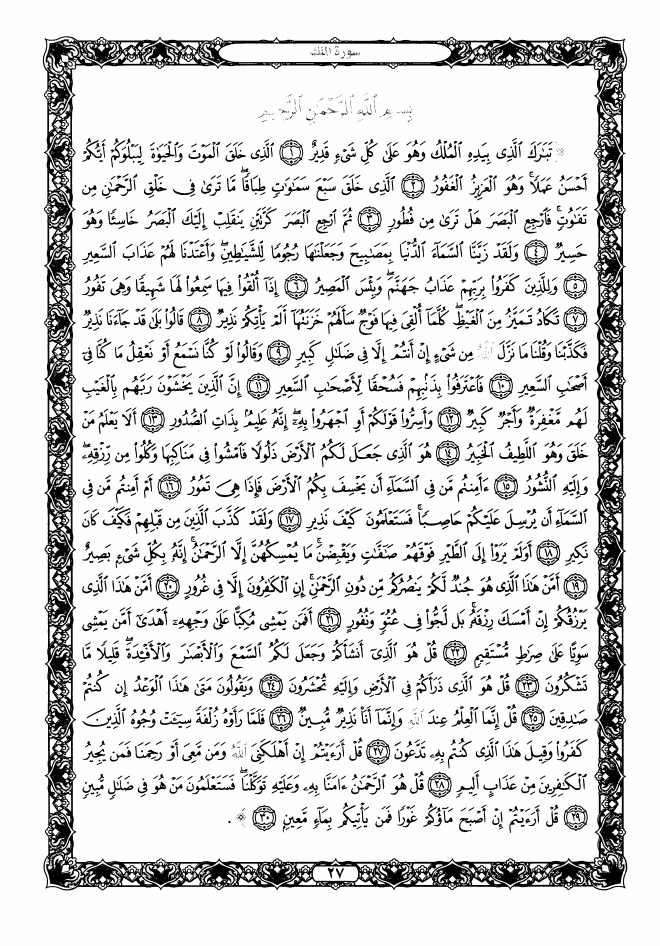 سورة الملك
بِسْمِ ٱللَّهِ ٱلرَّحْمَٰنِ ٱلرَّحِيمِ
﴿ تَبَٰرَكَ ٱلَّذِى بِيَدِهِ ٱلْمُلْكُ وَهُوَ عَلَىٰ كُلِّ شَىْءٍ قَدِيرٌ ﴿١﴾ ٱلَّذِى خَلَقَ ٱلْمَوْتَ وَٱلْحَيَوٰةَ لِيَبْلُوَكُمْ أَيُّكُمْ
أَحْسَنُ عَمَلًا ۚ وَهُوَ ٱلْعَزِيزُ ٱلْغَفُورُ ﴿٢﴾ ٱلَّذِى خَلَقَ سَبْعَ سَمَٰوَٰتٍ طِبَاقًا ۖ مَّا تَرَىٰ فِى خَلْقِ ٱلرَّحْمَٰنِ مِن
تَفَٰوُتٍ ۖ فَٱرْجِعِ ٱلْبَصَرَ هَلْ تَرَىٰ مِن فُطُورٍ ﴿٣﴾ ثُمَّ ٱرْجِعِ ٱلْبَصَرَ كَرَّتَيْنِ يَنقَلِبْ إِلَيْكَ ٱلْبَصَرُ خَاسِئًا وَهُوَ
حَسِيرٌ ﴿٤﴾ وَلَقَدْ زَيَّنَّا ٱلسَّمَآءَ ٱلدُّنْيَا بِمَصَٰبِيحَ وَجَعَلْنَٰهَا رُجُومًا لِّلشَّيَٰطِينِ ۖ وَأَعْتَدْنَا لَهُمْ عَذَابَ ٱلسَّعِيرِ
﴿٥﴾ وَلِلَّذِينَ كَفَرُوا۟ بِرَبِّهِمْ عَذَابُ جَهَنَّمَ ۖ وَبِئْسَ ٱلْمَصِيرُ ﴿٦﴾ إِذَآ أُلْقُوا۟ فِيهَا سَمِعُوا۟ لَهَا شَهِيقًا وَهِىَ تَفُورُ
﴿٧﴾ تَكَادُ تَمَيَّزُ مِنَ ٱلْغَيْظِ ۖ كُلَّمَآ أُلْقِىَ فِيهَا فَوْجٌ سَأَلَهُمْ خَزَنَتُهَآ أَلَمْ يَأْتِكُمْ نَذِيرٌ ﴿٨﴾ قَالُوا۟ بَلَىٰ قَدْ جَآءَنَا نَذِيرٌ
فَكَذَّبْنَا وَقُلْنَا مَا نَزَّلَ ٱللَّهُ مِن شَىْءٍ إِنْ أَنتُمْ إِلَّا فِى ضَلَٰلٍ كَبِيرٍ ﴿٩﴾ وَقَالُوا۟ لَوْ كُنَّا نَسْمَعُ أَوْ نَعْقِلُ مَا كُنَّا فِىٓ
أَصْحَٰبِ ٱلسَّعِيرِ ﴿١٠﴾ فَٱعْتَرَفُوا۟ بِذَنۢبِهِمْ فَسُحْقًا لِّأَصْحَٰبِ ٱلسَّعِيرِ ﴿١١﴾ إِنَّ ٱلَّذِينَ يَخْشَوْنَ رَبَّهُم بِٱلْغَيْبِ
لَهُم مَّغْفِرَةٌ وَأَجْرٌ كَبِيرٌ ﴿١٢﴾ وَأَسِرُّوا۟ قَوْلَكُمْ أَوِ ٱجْهَرُوا۟ بِهِۦٓ ۖ إِنَّهُۥ عَلِيمٌۢ بِذَاتِ ٱلصُّدُورِ ﴿١٣﴾ أَلَا يَعْلَمُ مَنْ
خَلَقَ وَهُوَ ٱللَّطِيفُ ٱلْخَبِيرُ ﴿١٤﴾ هُوَ ٱلَّذِى جَعَلَ لَكُمُ ٱلْأَرْضَ ذَلُولًا فَٱمْشُوا۟ فِى مَنَاكِبِهَا وَكُلُوا۟ مِن رِّزْقِهِۦ ۖ
وَإِلَيْهِ ٱلنُّشُورُ ﴿١٥﴾ ءَأَمِنتُم مَّن فِى ٱلسَّمَآءِ أَن يَخْسِفَ بِكُمُ ٱلْأَرْضَ فَإِذَا هِىَ تَمُورُ ﴿١٦﴾ أَمْ أَمِنتُم مَّن فِى
ٱلسَّمَآءِ أَن يُرْسِلَ عَلَيْكُمْ حَاصِبًا ۖ فَسَتَعْلَمُونَ كَيْفَ نَذِيرِ ﴿١٧﴾ وَلَقَدْ كَذَّبَ ٱلَّذِينَ مِن قَبْلِهِمْ فَكَيْفَ كَانَ
نَكِيرِ ﴿١٨﴾ أَوَلَمْ يَرَوْا۟ إِلَى ٱلطَّيْرِ فَوْقَهُمْ صَٰٓفَّٰتٍ وَيَقْبِضْنَ ۚ مَا يُمْسِكُهُنَّ إِلَّا ٱلرَّحْمَٰنُ ۚ إِنَّهُۥ بِكُلِّ شَىْءٍۭ بَصِيرٌ
﴿١٩﴾ أَمَّنْ هَٰذَا ٱلَّذِى هُوَ جُندٌ لَّكُمْ يَنصُرُكُم مِّن دُونِ ٱلرَّحْمَٰنِ ۚ إِنِ ٱلْكَٰفِرُونَ إِلَّا فِى غُرُورٍ ﴿٢٠﴾ أَمَّنْ هَٰذَا ٱلَّذِى
يَرْزُقُكُمْ إِنْ أَمْسَكَ رِزْقَهُۥ ۚ بَل لَّجُّوا۟ فِى عُتُوٍّ وَنُفُورٍ ﴿٢١﴾ أَفَمَن يَمْشِى مُكِبًّا عَلَىٰ وَجْهِهِۦٓ أَهْدَىٰٓ أَمَّن يَمْشِى
سَوِيًّا عَلَىٰ صِرَٰطٍ مُّسْتَقِيمٍ ﴿٢٢﴾ قُلْ هُوَ ٱلَّذِىٓ أَنشَأَكُمْ وَجَعَلَ لَكُمُ ٱلسَّمْعَ وَٱلْأَبْصَٰرَ وَٱلْأَفْـِٔدَةَ ۖ قَلِيلًا مَّا
تَشْكُرُونَ ﴿٢٣﴾ قُلْ هُوَ ٱلَّذِى ذَرَأَكُمْ فِى ٱلْأَرْضِ وَإِلَيْهِ تُحْشَرُونَ ﴿٢٤﴾ وَيَقُولُونَ مَتَىٰ هَٰذَا ٱلْوَعْدُ إِن كُنتُمْ
صَٰدِقِينَ ﴿٢٥﴾ قُلْ إِنَّمَا ٱلْعِلْمُ عِندَ ٱللَّهِ وَإِنَّمَآ أَنَا۠ نَذِيرٌ مُّبِينٌ ﴿٢٦﴾ فَلَمَّا رَأَوْهُ زُلْفَةً سِيٓـَٔتْ وُجُوهُ ٱلَّذِينَ
كَفَرُوا۟ وَقِيلَ هَٰذَا ٱلَّذِى كُنتُم بِهِۦ تَدَّعُونَ ﴿٢٧﴾ قُلْ أَرَءَيْتُمْ إِنْ أَهْلَكَنِىَ ٱللَّهُ وَمَن مَّعِىَ أَوْ رَحِمَنَا فَمَن يُجِيرُ
ٱلْكَٰفِرِينَ مِنْ عَذَابٍ أَلِيمٍ ﴿٢٨﴾ قُلْ هُوَ ٱلرَّحْمَٰنُ ءَامَنَّا بِهِۦ وَعَلَيْهِ تَوَكَّلْنَا ۖ فَسَتَعْلَمُونَ مَنْ هُوَ فِى ضَلَٰلٍ مُّبِينٍ
﴿٢٩﴾ قُلْ أَرَءَيْتُمْ إِنْ أَصْبَحَ مَآؤُكُمْ غَوْرًا فَمَن يَأْتِيكُم بِمَآءٍ مَّعِينٍۭ ﴿٣٠﴾ ﴾ .
٢٧